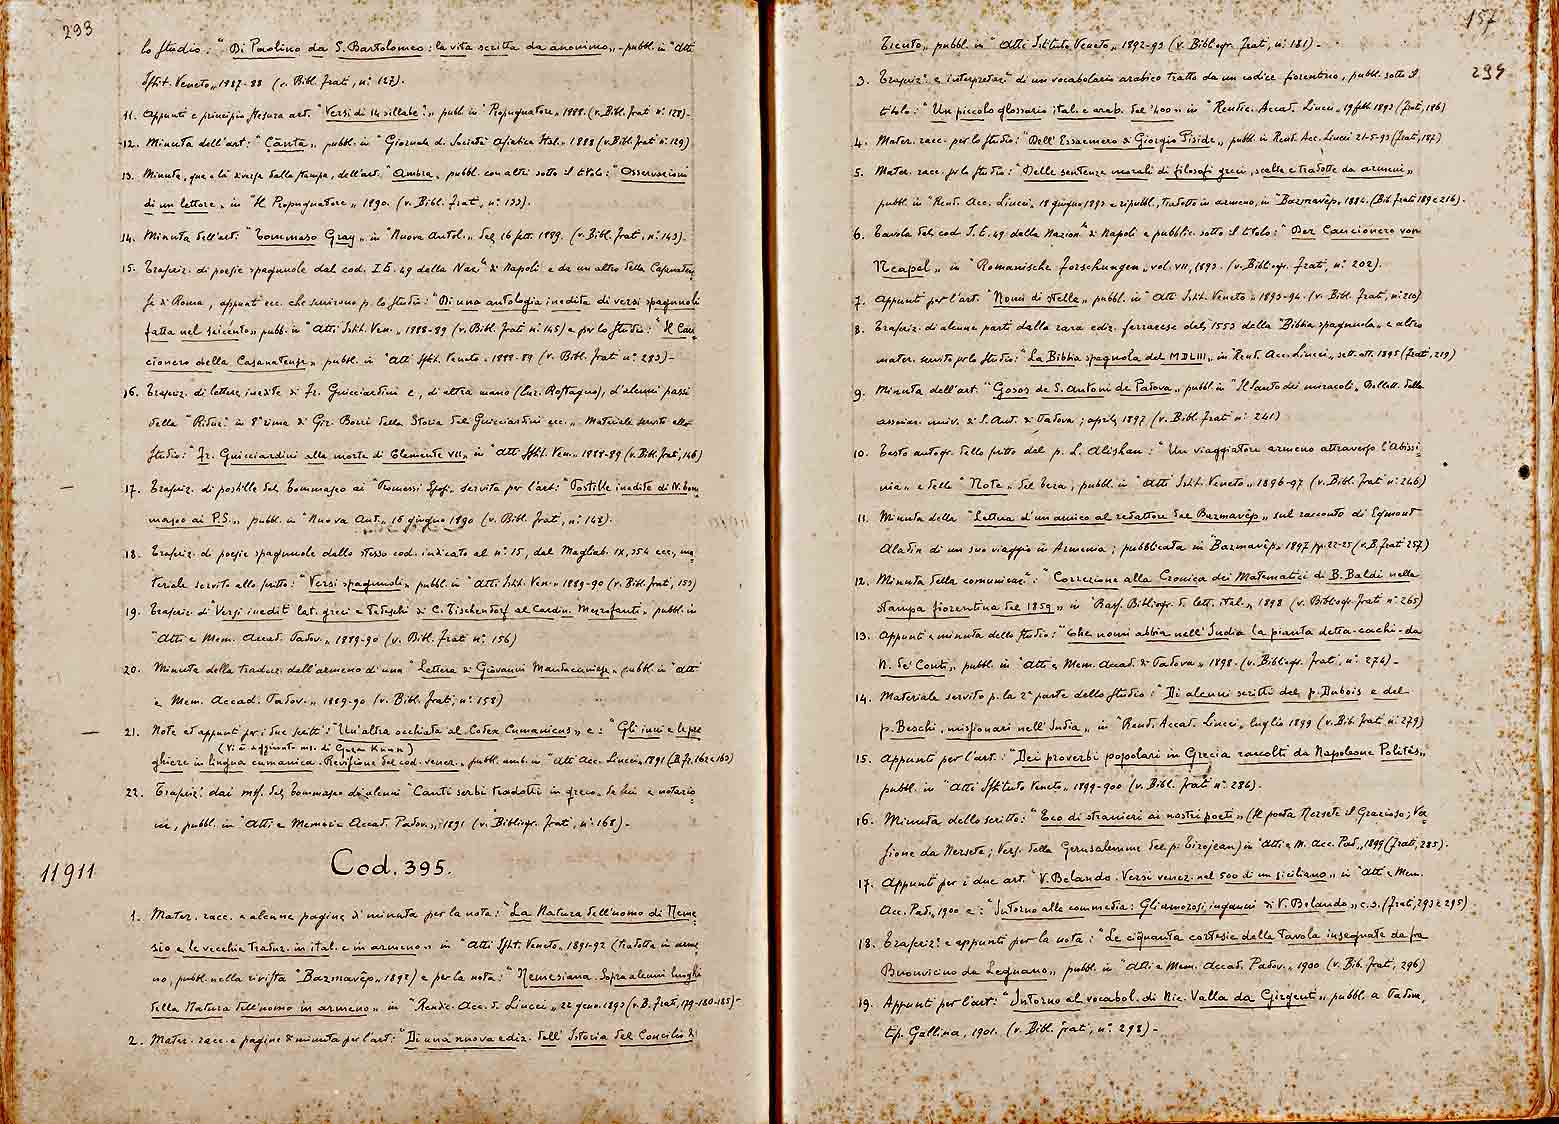 293
lo studio: "Di Paolino da S. Bartolomeo: la vita scritta da anonimo„ - pubbl. in "Atti
Istit. Veneto„ 1887-88 (v. Bibl. Frati, n.° 127).
11. Appunti e principio stesura art. "Versi di 14 sillabe"„ pubbl. in "Propugnatore„ 1888. (v. Bibl. Frati n.° 128)-
12. Minuta dell'art: "Çanta„ pubbl. in "Giornale d. Società Asiatica Ital.„ 1888 (v. Bibl. Frati n.° 129)
13. Minuta, qua e là diversa dalla stampa, dell'art. "Ambra„ pubbl. con altri sotto il titolo: "Osservazioni
di un lettore„ in "Il Propugnatore„ 1890. (v. Bibl. Frati, n.° 133).
14. Minuta dell'art. "Tommaso Gray„ in "Nuova Antol.„ del 16 sett. 1889. (v. Bibl. Frati, n.° 143)-
15. Trascriz. di poesie spagnuole dal cod. I.E. 49 della Naz.le di Napoli e da un altro della Casanaten,
se di Roma, appunti ecc. che servirono p. lo studio: "Di una antologia inedita di versi spagnuoli
fatta nel seicento„ pubb. in "Atti Istit. Ven.„ 1888-89 (v. Bibl. Frati n.° 145) e per lo studio: "Il Can,
cionero della Casanatense„ pubbl. in "Atti Istit. Veneto„ 1888-89 (v. Bibl. Frati n.° 283)-
16. Trascriz. di lettere inedite di Fr. Guicciardini e, di altra mano (Luz. Rostagno), d'alcuni passi
della "Riduz. in 8a rima di Gir. Borri della Storia del Guicciardini ecc.„ Materiale servito allo
studio: "Fr. Guicciardini alla morte di Clemente VII„ in "Atti Istit. Ven.„ 1888-89 (v. Bibl. Frati, 146)
17. Trascriz. di postille del Tommaseo ai "Promessi Sposi„ servita per l'art: "Postille inedite di N. Tom,
maseo ai P.S.„ pubbl. in "Nuova Ant.„ 16 giugno 1890 (v. Bibl. Frati, n.° 148).
18. Trascriz. di poesie spagnuole dallo stesso cod. indicato al n.° 15, dal Magliab. IX, 354 ecc, ma
teriale servito allo scritto: "Versi spagnuoli„ pubbl. in "Atti Istit. Ven.„ 1889-90 (v. Bibl. Frati, 153)
19. Trascriz. di "Versi inediti lat. greci e tedeschi di C. Tischendorf al Cardin. Mezzofanti„ pubbl. in
"Atti e Mem. Accad. Padov.„ 1889-90 (v. Bibl. Frati n.° 156)
20. Minuta della traduz. dall'armeno d'una "Lettera di Giovanni Mandacuniese„ pubbl. in "Atti
e Mem. Accad. Padov.„ 1889-90 (v. Bibl. Frati, n.° 158)
21. Note ed appunti per i due scritti: "Un'altra occhiata al Codex Cumanicus„ e: "Gli inni e le pre
(Vi è aggiunto ms. di Geza Kuun)
ghiere in lingua cumanica. Revisione del cod. venez.„ pubbl. amb. in "Atti Acc. Lincei„ 1891 (B. Fr. 162 e 163)
22. Trascriz. dai mss. del Tommaseo di alcuni "Canti serbi tradotti in greco„ da lui e notario
ni, pubbl. in "Atti e Memorie Accad. Padov.„ 1891 (v. Bibliogr. Frati, n.° 168)-
11911
Cod. 395.
1. Mater. racc. e alcune pagine di minuta per la nota: "La Natura dell'uomo di Neme
sio e le vecchie traduz. in ital. e in armeno„ in "Atti Istit. Veneto„ 1891-92 (tradotta in arme
no, pubbl. nella rivista "Bazmavêp„ 1892) e per la nota: "Nemesiana. Sopra alcuni luoghi
della Natura dell'uomo in armeno„ in "Rendic. Acc. d. Lincei„ 22 genn. 1893 (v. B. Frati, 179-180-185)-
2. Mater. racc. e pagine di minuta per l'art: "Di una nuova ediz. dell'Istoria del Concilio di
157
294
Trento„ pubbl. in "Atti Istituto Veneto„ 1892-93 (v. Bibliogr. Frati, n.° 181)-
3. Trascriz. e interpretaz. di un vocabolario arabico tratto da un codice fiorentino, pubbl. sotto il
titolo: "Un piccolo glossario ital. e arab. del '400„ in "Rendic. Accad. Lincei„ 19 febb. 1893 (Frati, 186)
4. Mater. racc. per lo studio: "Dell'Essaemero di Giorgio Piside„ pubbl. in Rend. Acc. Lincei 21-5-93 (Frati, 187)
5. Mater. racc. per lo studio: "Delle sentenze morali di filosofi greci, scelte e tradotte da armeni„
pubbl. in "Rend. Acc. Lincei„ 18 giugno 1893 e ripubbl., tradotto in armeno, in "Bazmavêp„ 1884. (Bib. Frati 189 e 216).
6. Tavola del cod. I. E. 49 della Nazion.le di Napoli e pubblic. sotto il titolo: "Der Cancionero von
Neapel„ in "Romanische Forschungen„ vol. VII, 1893. (v. Bibliogr. Frati, n.° 202).
7. Appunti per l'art. "Nomi di stelle„ pubbl. in "Atti Istit. Veneto„ 1893-94. (v. Bibl. Frati, n.° 210)
8. Trascriz. di alcune parti dalla rara ediz. ferrarese del 1553 della "Bibbia spagnuola„ e altro
mater. servito per lo studio: "La Bibbia spagnola del MDLIII„ in "Rend. Acc. Lincei„ sett. ott. 1895 (Frati, 219)
9. Minuta dell'art. "Gosos de S. Antoni de Padova„ pubbl. in "Il Santo dei miracoli„ Bollett. della
associaz. univ. di S. Ant. di Padova; aprile 1897 (v. Bibl. Frati n.° 241)
10. Testo autogr. dello scritto del p. L. Alishan: "Un viaggiatore armeno attraverso l'Abissi,
nia„ e delle "Note„ del Teza, pubbl. in "Atti Istit. Veneto„ 1896-97 (v. Bibl. Frati n.° 246)
11. Minuta della "Lettera d'un amico al redattore del Bazmavêp„ sul racconto di Egmont
Aladin di un suo viaggio in Armenia; pubblicata in "Bazmavêp„ 1897 pp. 22-25 (v. B. Frati 257)
12. Minuta della comunicaz.: "Correzione alla Cronica dei Matematici di B. Baldi nella
stampa fiorentina del 1859„ in "Rass. Bibliogr. d. lett. ital.„ 1898 (v. Bibliogr. Frati n.° 265)
13. Appunti e minuta dello studio: "Che nomi abbia nell'India la pianta detta-cachi-da
N. de' Conti„ pubbl. in "Atti e Mem. Accad. di Padova„ 1898. (v. Bibliogr. Frati, n.° 274)-
14. Materiale servito p. la 2a parte dello studio: "Di alcuni scritti del p. Dubois e del
p. Beschi, missionari nell'India„ in "Rend. Accad. Lincei„ luglio 1899 (v. Bib. Frati n.° 279)
15. Appunti per l'art.: "Dei proverbi popolari in Grecia raccolti da Napoleone Politês„
pubbl. in "Atti Istituto Veneto„ 1899-900 (v. Bibl. Frati n.° 284).
16. Minuta dello scritto: "Eco di stranieri ai nostri poeti„ (Il poeta Nersete il Grazioso; Va,
sione da Nersete; Vers. della Gerusalemme del p. Tirojean) in "Atti e M. Acc. Pad„ 1899 (Frati, 285).
17. Appunti per i due art. "V. Belando. Versi venez. nel 500 di un siciliano„ in "Atti e Mem.
Acc. Pad„ 1900 e: "Intorno alla commedia: Gli amorosi inganni di V. Belando„ c. s. (Frati, 293 e 295)
18. Trascriz. e appunti per la nota: "Le ciquanta cortesie della tavola insegnate da fra
Buonvicino da Legnano„ pubbl. in "Atti e Mem. Accad. Padov.„ 1900 (v. Bib. Frati, 296)
19. Appunti per l'art: "Intorno al vocabol. di Nic. Valla da Girgenti„ pubbl. a Padova,
tip. Gallina, 1901. (v. Bibl. Frati, n.° 298)-